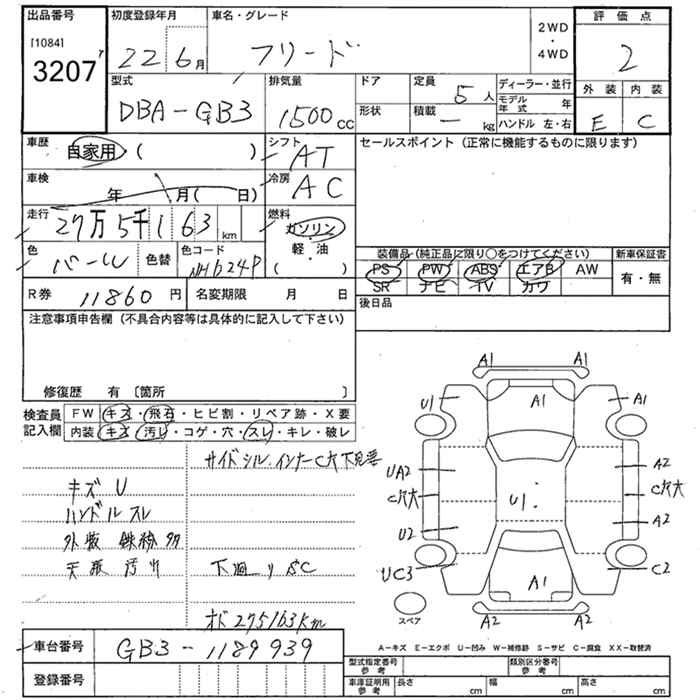 出品番号 初度登録年月 車名・グレード 2WD・4WD 評価点
[1084] 3207 22 6月 フリード 2
型式 排気量 ドア 定員 ディーラー・並行 外装 内装
DBA-GB3 1500cc 5人 モデル年式 年 E C
形状 積載 ー kg ハンドル 左・右
車歴 自家用 ( ) シフト AT セールスポイント (正常に機能するものに限ります)
車検 年 月( 日) 冷房 AC
走行 27万5千163 km 燃料 ガソリン
軽・油
( )
色 パール 色替 色コード NH624P
装備品 (純正品に限り○をつけてください) 新車保証書
PS PW ABS エアB AW 有・無
SR ナビ TV カワ
R券 11860円 名変期限 月 日 後日品
注意事項申告欄 (不具合内容等は具体的に記入して下さい)
修復歴 有 〔箇所 〕
検査員記入欄 FW キズ・飛石・ヒビ割・リペア跡・X要
内装 キズ・汚レ・コゲ・穴・スレ・キレ・破レ
サイドシル.インナーC穴
キズ U
ハンドルスレ
外板 線傷多
天張汚れ 下廻りSC
オド275163km
A1 A1
U1 A1 A1
UA2 A2
C穴大 U1. C穴大
U2 A2
UC3 A1 C2
スペア A2 A2
車台番号 GB3-1189939
A-キズ E-エクボ U-凹み W-補修跡 S-サビ C-腐食 XX-取替済
登録番号 型式指定番号 参考 類別区分番号 参考
車庫証明用 参考 長さ cm 幅 cm 高さ cm